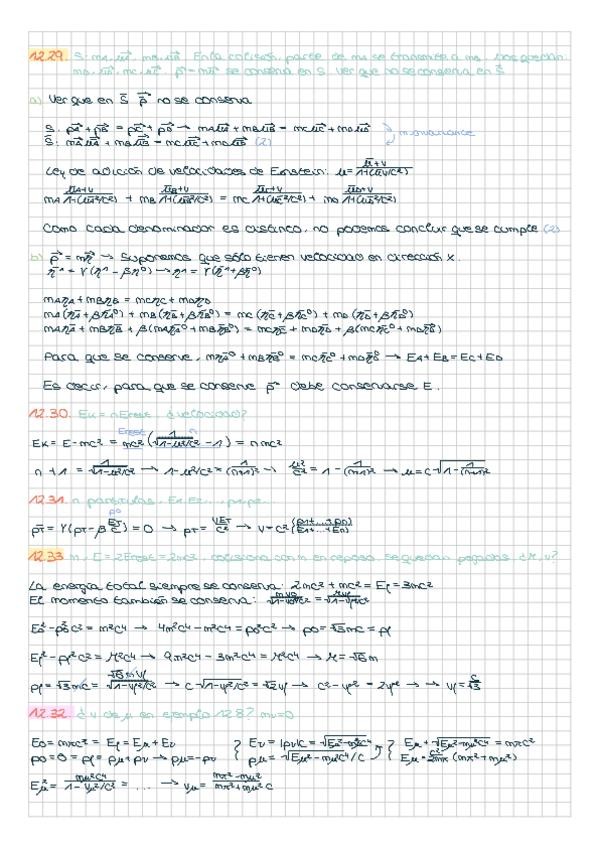 12.29. S: mA, uA, mB, uB. En la colisión, parte de mA se transmite a mB. Nos quedan
mD, uD, mC, uC. p = mu se conserva en S. Ver que no se conserva en S̄
a) Ver que en S̄ p no se conserva
S: pA + pB = pC + pD → mA uA + mB uB = mC uC + mD uD
S̄: mA ūA + mB ūB = mC ūC + mD ūD (2)
m invariance
Ley de adición de velocidades de Einstein: u = (ū+v)/(1+(ūv/c²))
mA (ūA+v)/(1+(ūAv/c²)) + mB (ūB+v)/(1+(ūBv/c²)) = mC (ūC+v)/(1+(ūCv/c²)) + mD (ūD+v)/(1+(ūDv/c²))
Como cada denominador es distinto, no podemos concluir que se cumple (2)
b) p = mη → Suponemos que sólo tienen velocidad en dirección x.
η̄¹ = γ(η¹ - βη⁰) → η¹ = γ(η̄¹ + βη̄⁰)
mAηA + mBηB = mCηC + mDηD
mA(η̄A + βη̄A⁰) + mB(η̄B + βη̄B⁰) = mC(η̄C + βη̄C⁰) + mD(η̄D + βη̄D⁰)
mAη̄A + mBη̄B + β(mAη̄A⁰ + mBη̄B⁰) = mCη̄C + mDη̄D + β(mCη̄C⁰ + mDη̄D⁰)
Para que se conserve, mAη̄A⁰ + mBη̄B⁰ = mCη̄C⁰ + mDη̄D⁰ → EA + EB = EC + ED
Es decir, para que se conserve p debe conservarse E.
12.30. Ek = nErest, ¿velocidad?
Erest n
Ek = E - mc² = mc² (1/√(1-u²/c²) - 1) = nmc²
n + 1 = 1/√(1-u²/c²) → 1 - u²/c² = 1/(n+1)² → u²/c² = 1 - 1/(n+1)² → u = c√(1 - 1/(n+1)²)
12.31. n partículas, E1 E2 ..., p1 p2...
p⁰
p̄T = γ(pT - β ET/c) = 0 → pT = vET/c² → v = c² (p1+...+pn)/(E1+...+En)
12.33 m, E = 2Erest = 2mc², colisiona con m en reposo, se quedan pegados. ¿M, v?
La energía total siempre se conserva: 2mc² + mc² = Ef = 3mc²
El momento también se conserva: mv0/√(1-v0²/c²) = Mvf/√(1-vf²/c²)
E0² - p0²c² = m²c⁴ → 4m²c⁴ - m²c⁴ = p0²c² → p0 = √3mc = pf
Ef² - pf²c² = M²c⁴ → 9m²c⁴ - 3m²c⁴ = M²c⁴ → M = √6m
pf = √3mc = √6mvf/√(1-vf²/c²) → c√(1-vf²/c²) = √2vf → c² - vf² = 2vf² → → vf = c/√3
12.32 ¿v de μ en ejemplo 12.8? mν=0
E0 = mπc² = Ef = Eμ + Eν
p0 = 0 = pf = pμ + pν → pμ = -pν
Eν = |pν|c = √(Eμ²-mμ²c⁴)
pμ = √(Eμ²-mμ²c⁴)/c
Eμ + √(Eμ²-mμ²c⁴) = mπc²
Eμ = c²/2mπ (mπ² + mμ²)
Eμ² = mμ²c⁴/(1-vμ²/c²) = ... → vμ = (mπ²-mμ²)/(mπ²+mμ²) c